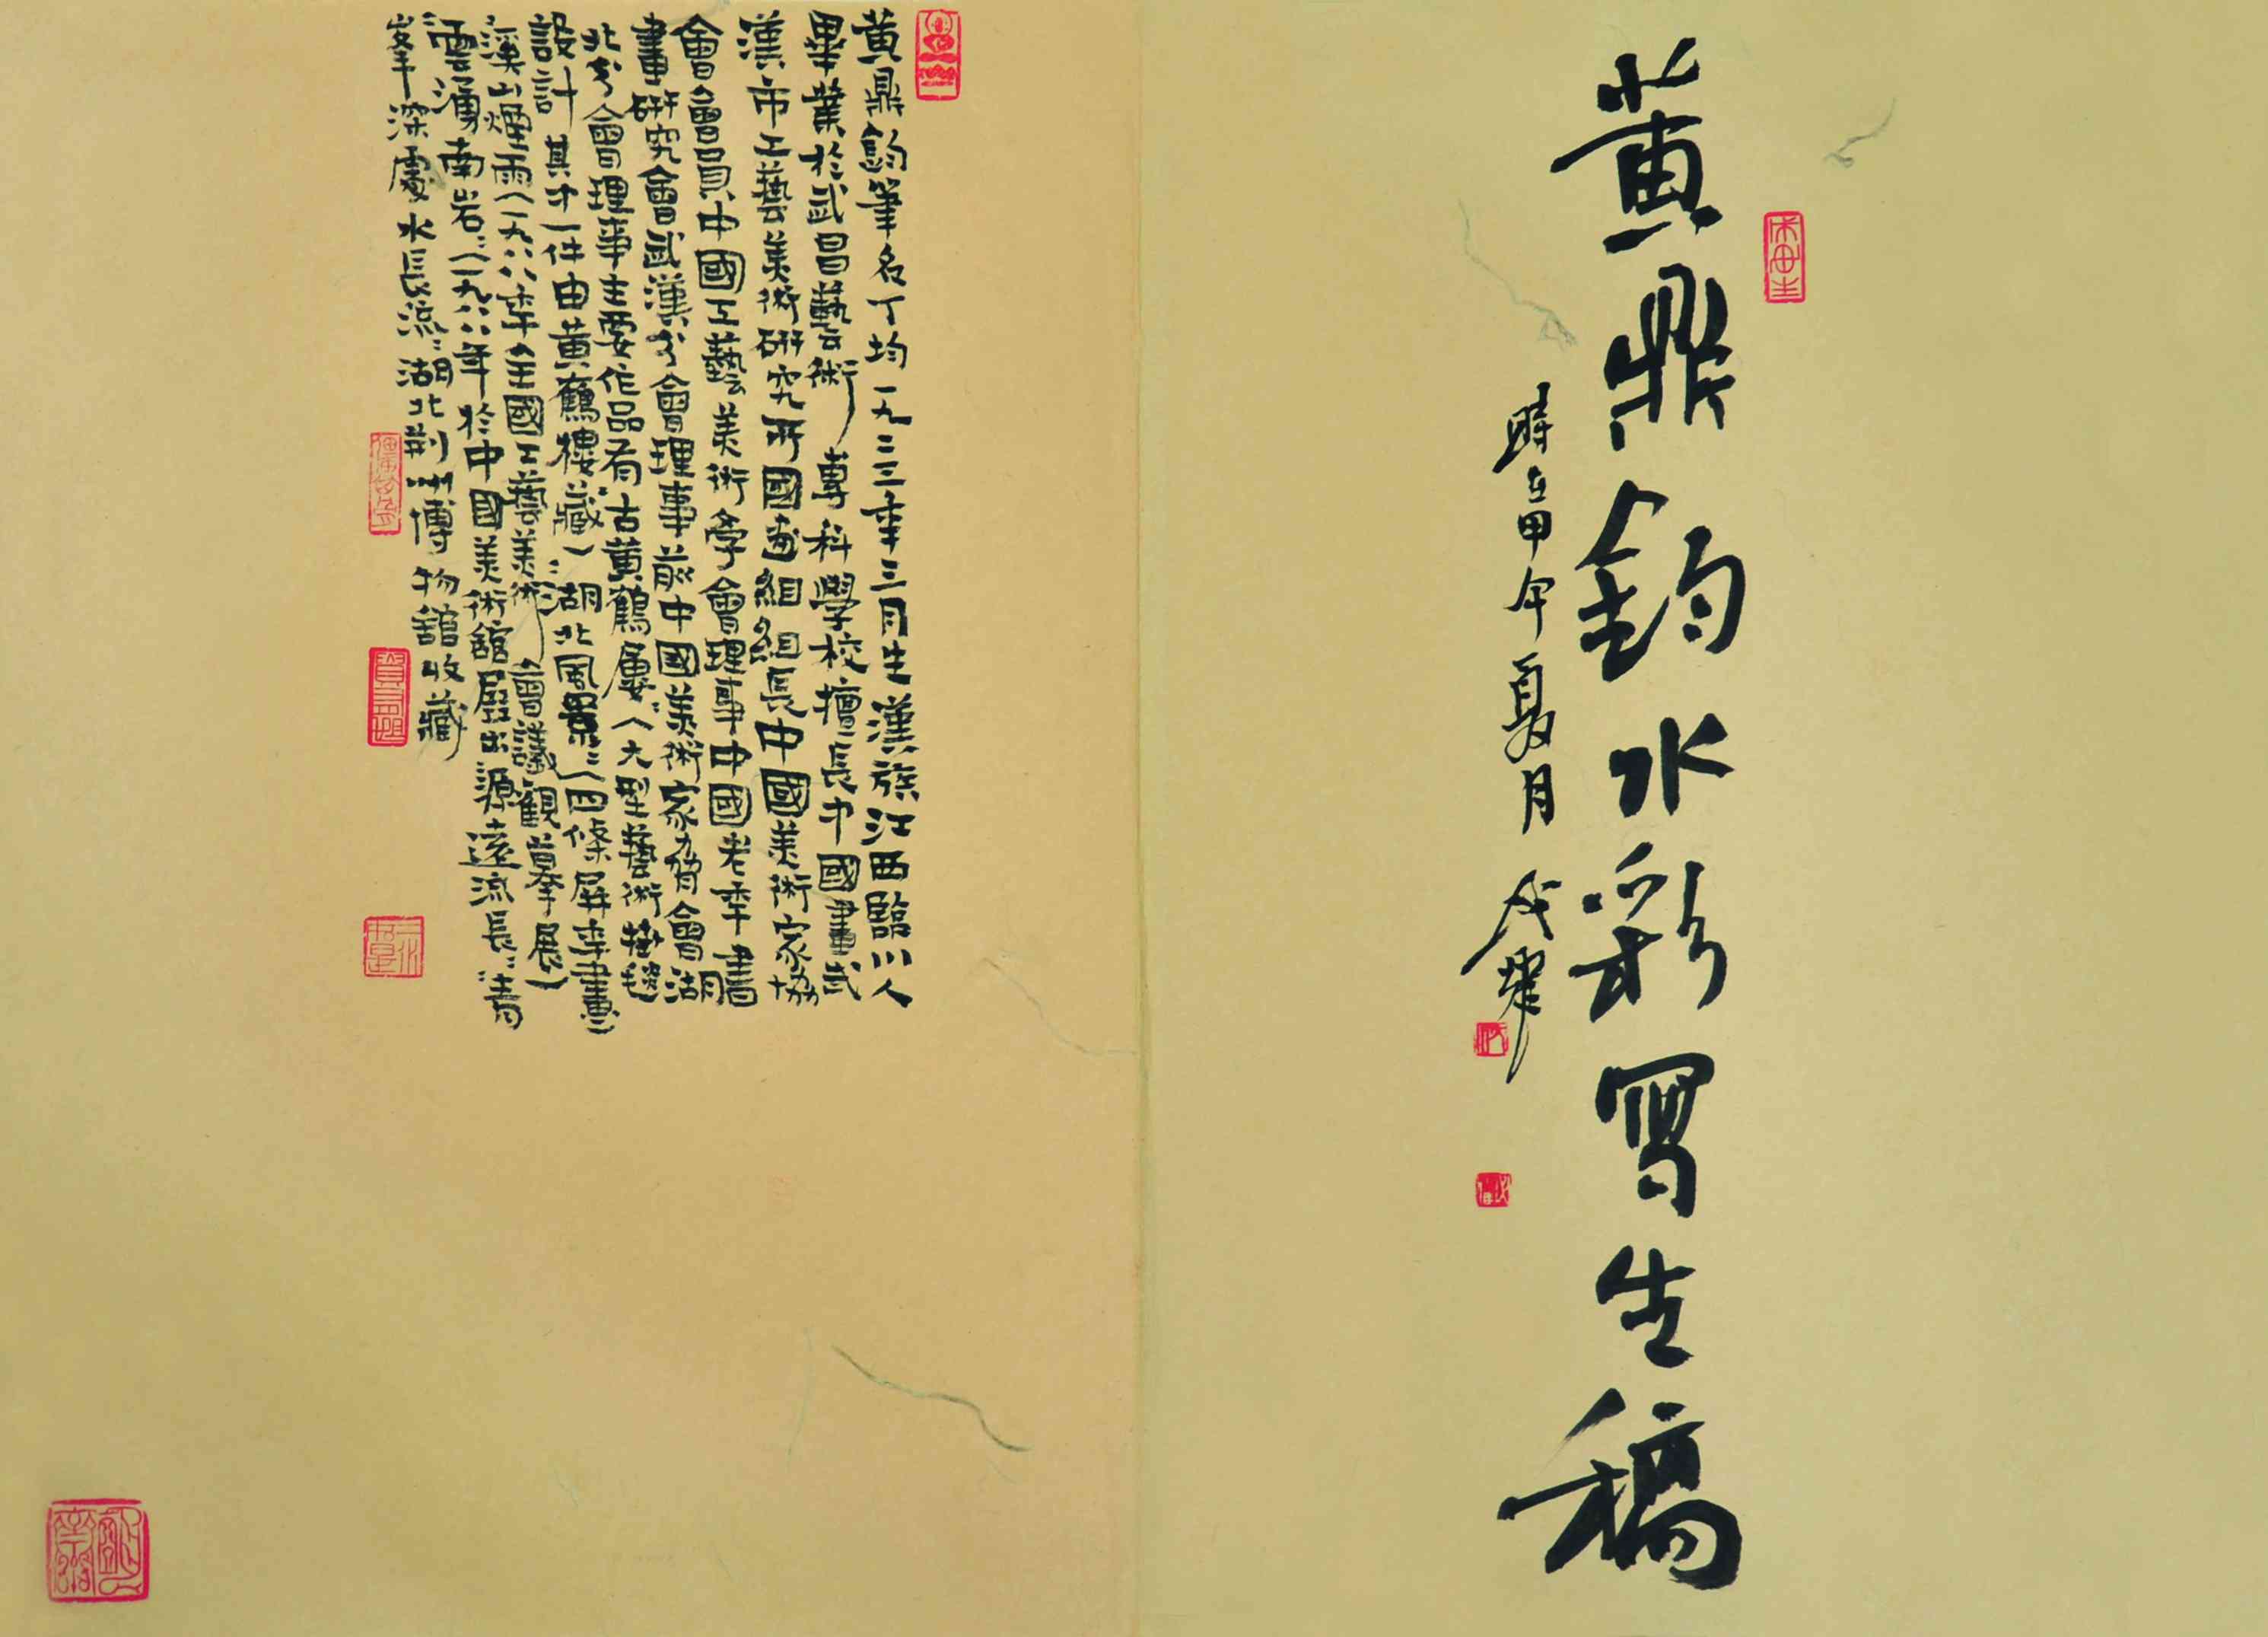 黃鼎鈞水彩寫生稿
時在甲午夏月
黃鼎鈞筆名丁均一九三三年三月生漢族江西臨川人
畢業於武昌藝術專科學校擅長中國畫武
漢市工藝美術研究所國畫組組長中國美術家協
會會員中國工藝美術學會理事中國老年書
畫研究會武漢分會理事前中國美術家協會湖
北分會理事主要作品有古黃鶴樓（大型藝術掛毯
設計其中一件由黃鶴樓藏）湖北風景（四條屏年畫）
溪山煙雨（一九八八年全國工藝美術會議觀摹展）
雲湧南岩（一九八八年於中國美術館展出源遠流長青
峯深處水長流湖北荆州博物館收藏